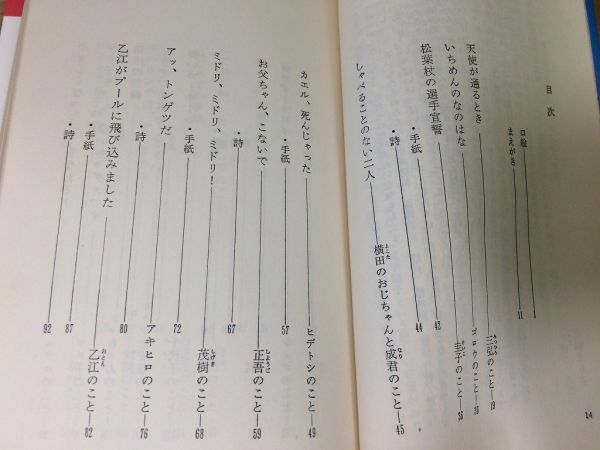 目次
口絵 1
まえがき 11
天使が通るとき 三弘のこと 19
いちめんのなのはな ゴロウのこと
松葉杖の選手宣誓 圭子のこと 36
・手紙 42
・詩 44
しゃべることのない二人 横田のおじちゃんと成君のこと 45
カエル、死んじゃった ヒデトシのこと 49
・手紙 57
お父ちゃん、こないで 正吾のこと 59
・詩 67
ミドリ、ミドリ、ミドリ! 茂樹のこと 68
・手紙 72
アッ、トンゲツだ アキヒロのこと 76
・詩 80
乙江がプールに飛び込みました 乙江のこと 82
・手紙 87
・詩 92
14